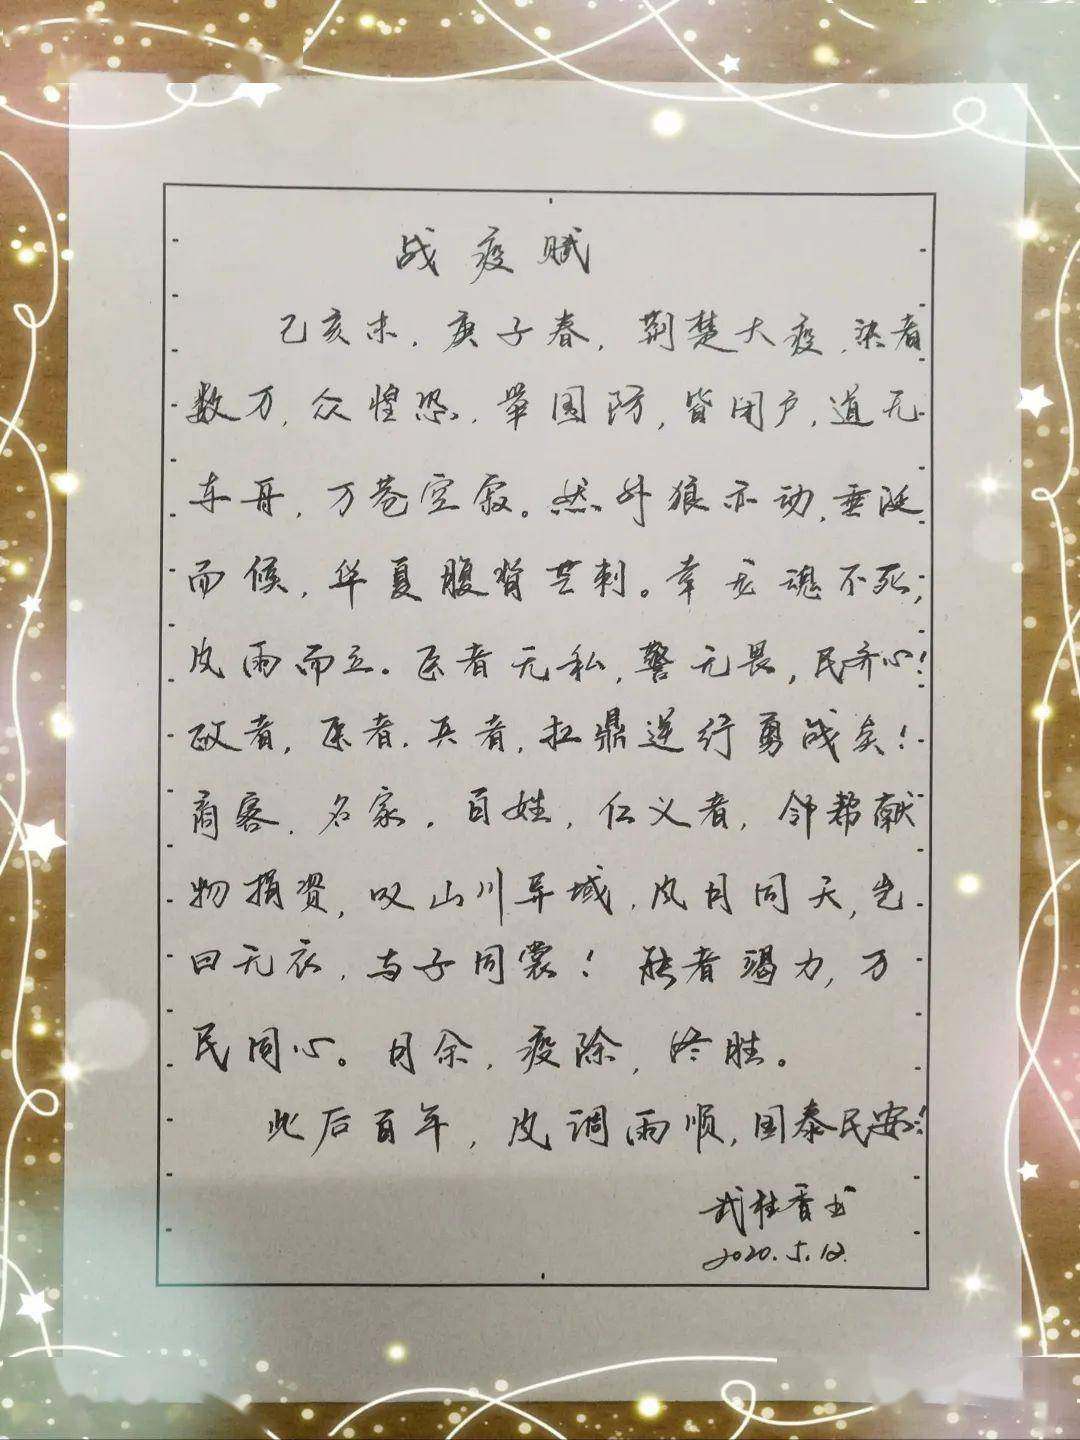 战疫赋
己亥末，庚子春，荆楚大疫，染者
数万，众惶恐，举国防，皆闭户，道无
车舟，万巷空寂。然外狼亦动，垂涎
而候，华夏腹背芒刺。幸龙魂不死，
风雨而立。医者无私，警无畏，民齐心！
政者，医者，兵者，扛鼎逆行勇战矣！
商客，名家，百姓，仁义者，邻帮献
物捐资，叹山川异域，风月同天，岂
曰无衣，与子同裳！能者竭力，万
民同心。月余，疫除，终胜。
此后百年，风调雨顺，国泰民安！
武桂香书
2020.5.12.